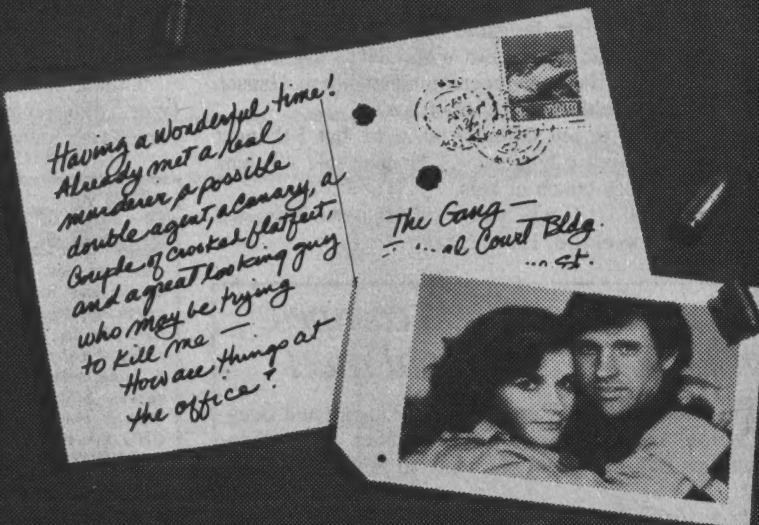 Having a wonderful time!
Already met a real
murderer, a possible
double agent, a canary, a
couple of crooked flatfeet,
and a great looking guy
who may be trying
to kill me —
How are things at
the office?
The Gang —
Court Bldg.
St.